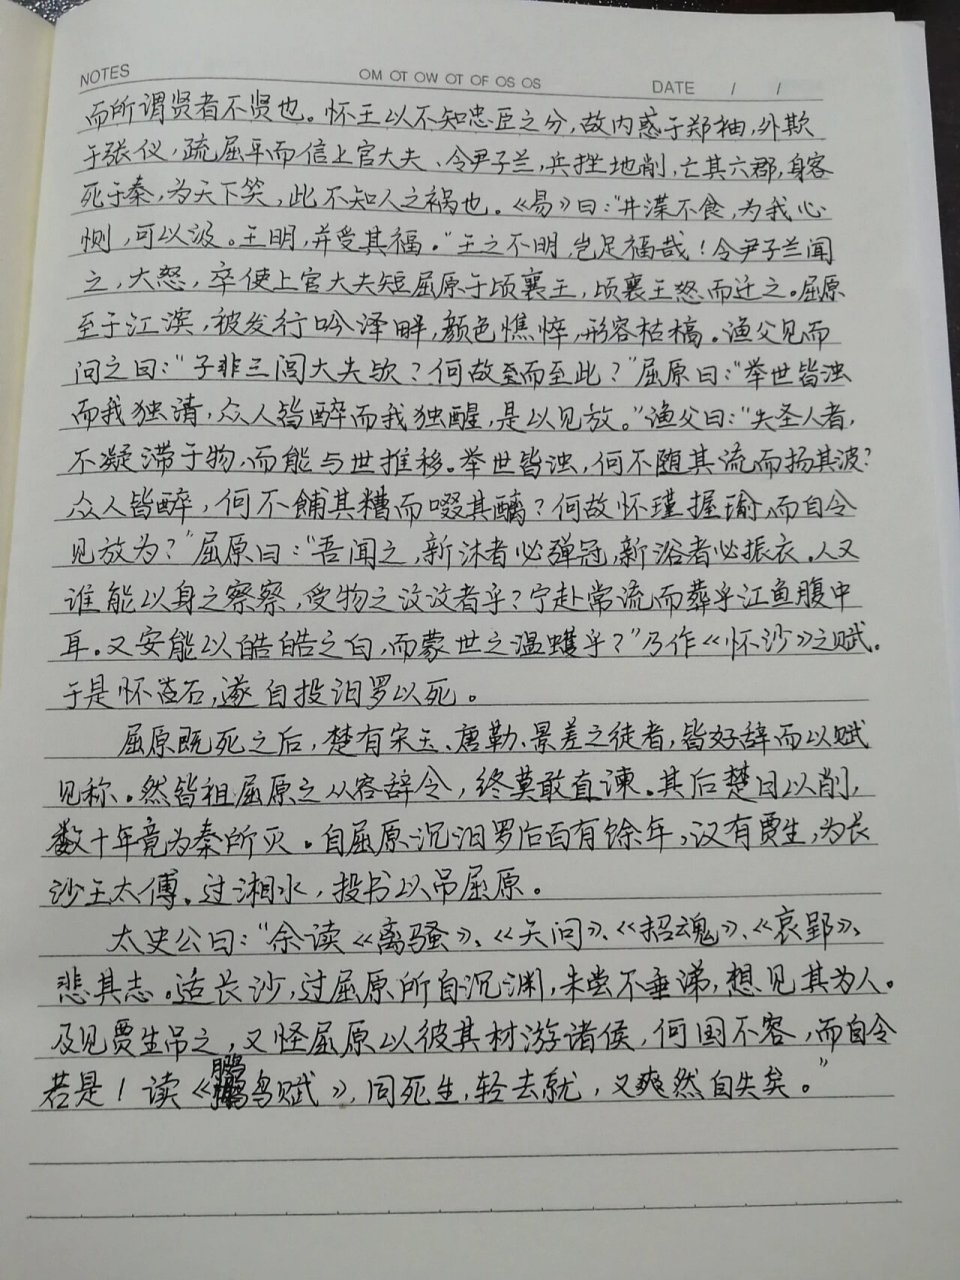 NOTES
OM OT OW OT OF OS OS
DATE / /
而所谓贤者不贤也。怀王以不知忠臣之分,故内惑于郑袖,外欺
于张仪,疏屈平而信上官大夫、令尹子兰,兵挫地削,亡其六郡,身客
死于秦,为天下笑,此不知人之祸也。《易》曰:"井渫不食,为我心
恻,可以汲。王明,并受其福。"王之不明,岂足福哉!令尹子兰闻
之,大怒,卒使上官大夫短屈原于顷襄王,顷襄王怒而迁之。屈原
至于江滨,被发行吟泽畔,颜色憔悴,形容枯槁。渔父见而
问之曰:"子非三闾大夫欤?何故至而至此?"屈原曰:"举世皆浊
而我独清,众人皆醉而我独醒,是以见放。"渔父曰:"夫圣人者,
不凝滞于物,而能与世推移。举世皆浊,何不随其流而扬其波?
众人皆醉,何不餔其糟而啜其醨?何故怀瑾握瑜,而自令
见放为?"屈原曰:"吾闻之,新沐者必弹冠,新浴者必振衣。人又
谁能以身之察察,受物之汶汶者乎?宁赴常流而葬乎江鱼腹中
耳。又安能以皓皓之白,而蒙世之温蠖乎?"乃作《怀沙》之赋。
于是怀石,遂自投汨罗以死。
屈原既死之后,楚有宋玉、唐勒、景差之徒者,皆好辞而以赋
见称。然皆祖屈原之从容辞令,终莫敢直谏。其后楚日以削,
数十年竟为秦所灭。自屈原沉汨罗后百有馀年,汉有贾生,为长
沙王太傅。过湘水,投书以吊屈原。
太史公曰:"余读《离骚》、《天问》、《招魂》、《哀郢》、
悲其志。适长沙,过屈原所自沉渊,未尝不垂涕,想见其为人。
及见贾生吊之,又怪屈原以彼其材游诸侯,何国不容,而自令
若是!读《鵩鸟赋》,同死生,轻去就,又爽然自失矣。"